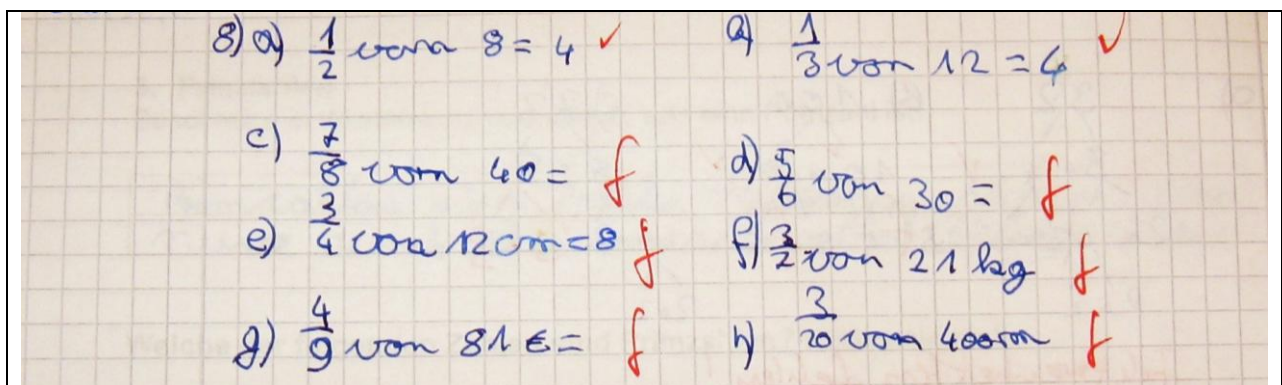 8) a) 1/2 von 8 = 4 ✓ b) 1/3 von 12 = 4 ✓
c) 7/8 von 40 = f d) 5/6 von 30 = f
e) 3/4 von 12cm = 8 f f) 3/7 von 21 kg f
g) 4/9 von 81 € = f h) 3/20 von 400m f